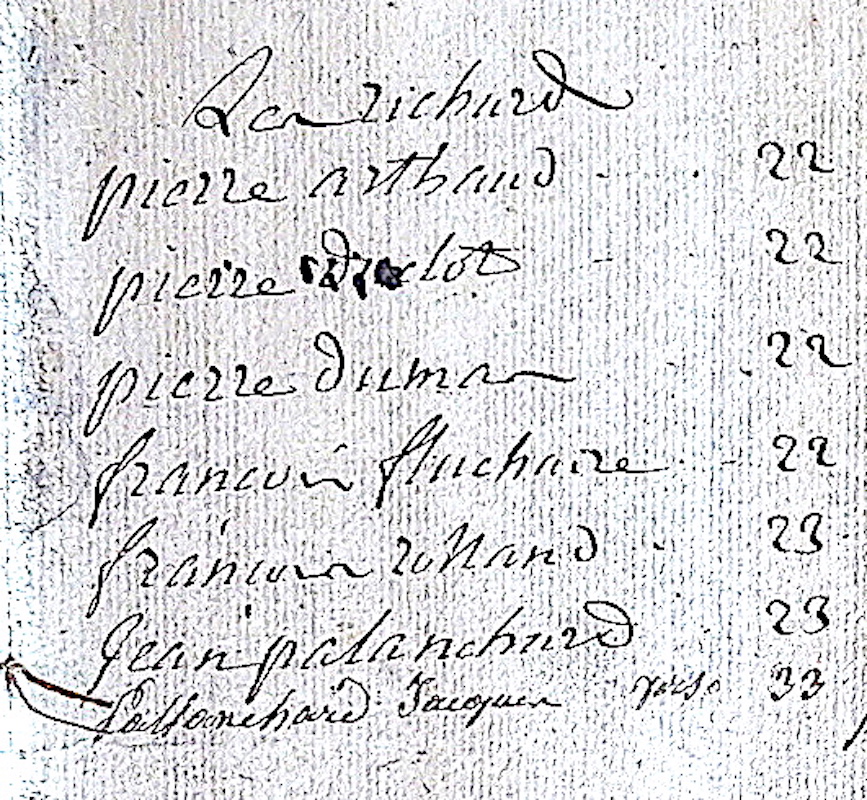 Les richard
pierre arthaud 22
pierre duclot 22
pierre dumas 22
francois fluchaire 22
francois rolland 23
Jean palanchard 23
Pallanchard Jacques verso 33